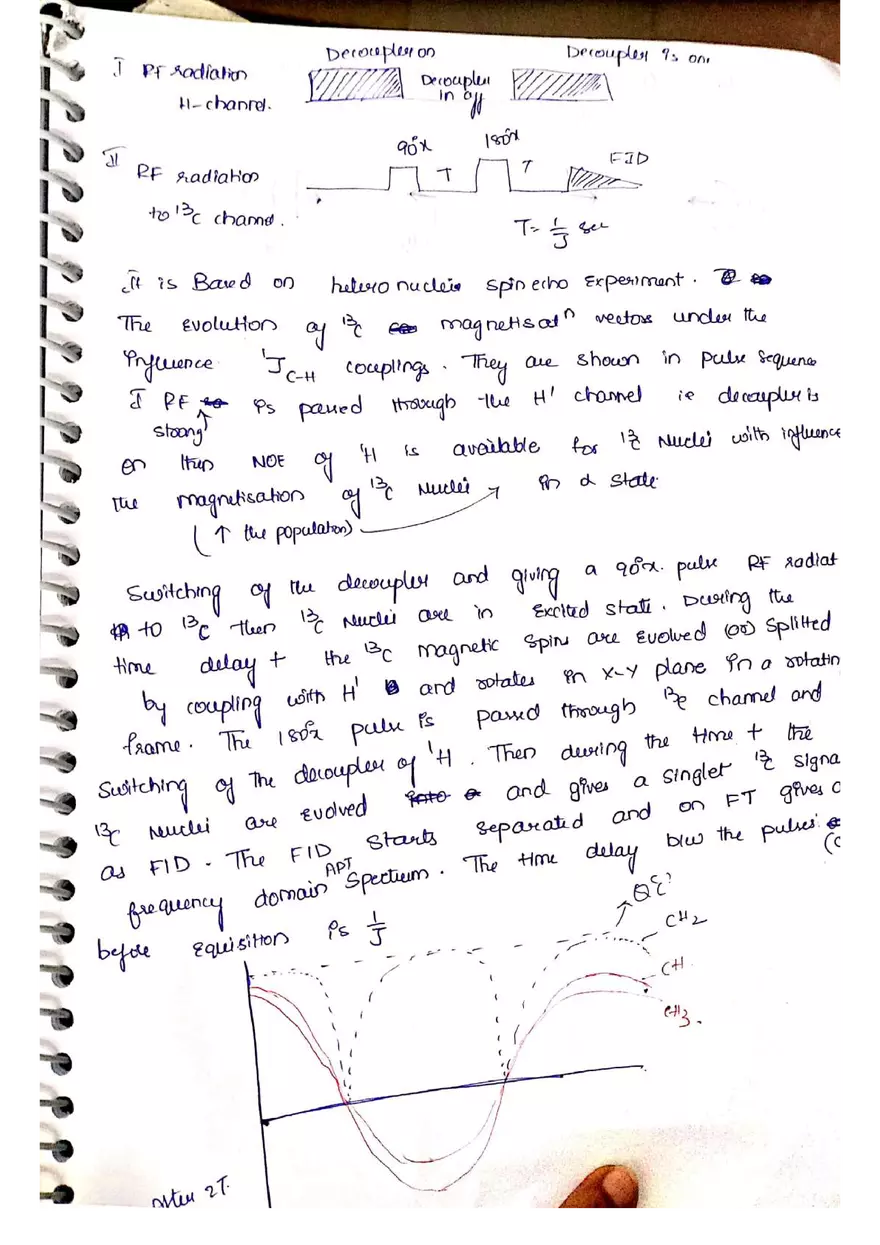 Decoupler on
Decoupler is on
I RF radiation
H-channel.
Decoupler
in off
II
RF radiation
to 13C channel.
90°x
T
180°x
T
FID
T = 1/J sec
It is Based on hetero nucleis spin echo Experiment.
The Evolution of 13C magnetisatn vectors under the
influence 1J C-H couplings. They are shown in pulse sequence
I RF strong is passed through the H1 channel ie decoupler is
on then NOE of 1H is available for 13C Nuclei with influence
the magnetisation of 13C Nuclei → in α state
(↑ the population)
Switching of the decoupler and giving a 90°x. pulse RF radiat
to 13C then 13C Nuclei are in Excited state. During the
time delay t the 13C magnetic spins are Evolved (or) splitted
by coupling with H1 and rotates in x-y plane in a rotatin
frame. The 180°x pulse is passed through 13C channel and
Switching of the decoupler of 1H. Then during the time t the
13C Nuclei are evolved and gives a singlet 13C signa
as FID. The FID starts separated and on FT gives a
frequency domain APT Spectrum. The time delay b/w the pulses
before Equisition is 1/J
CH2
CH
CH3.
After 2T.